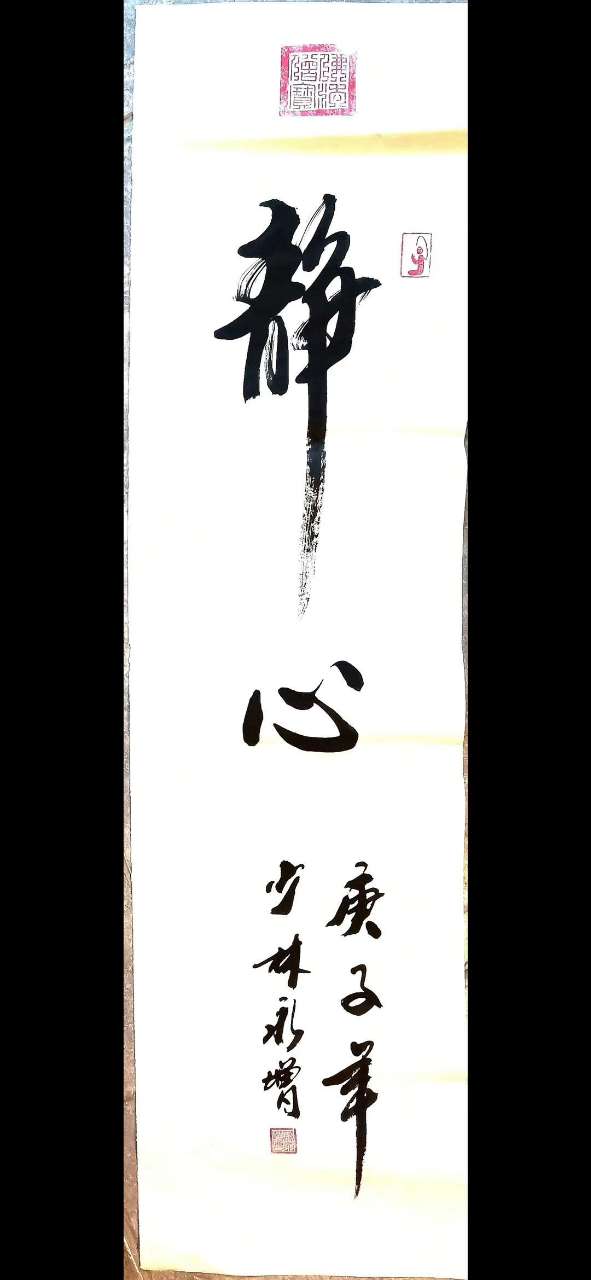 静心
庚子年
少林永增